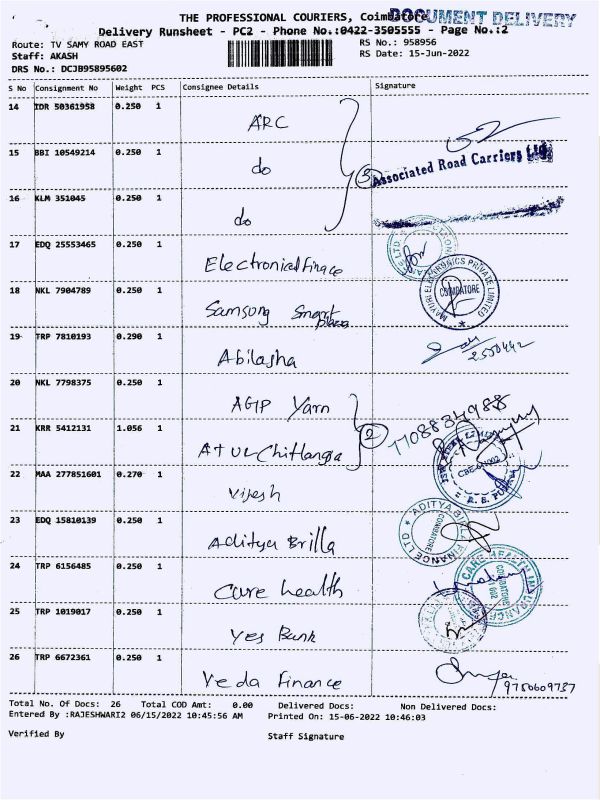 THE PROFESSIONAL COURIERS, Coimbatore
DOCUMENT DELIVERY
Delivery Runsheet - PC2 - Phone No.:0422-3505555 - Page No.:2
Route: TV SAMY ROAD EAST
RS No.: 958956
Staff: AKASH
RS Date: 15-Jun-2022
DRS No.: DCJB95895602
S No Consignment No Weight PCS Consignee Details Signature
14 IDR 50361958 0.250 1 ARC
15 BBI 10549214 0.250 1 do
3 Associated Road Carriers Ltd.
16 KLM 351045 0.250 1 do
17 EDQ 25553465 0.250 1 Electronica Finace
18 NKL 7904789 0.250 1 Samsung Smart plaza
MAYURI ELEKTRONICS PRIVATE LIMITED
COIMBATORE
19 TRP 7810193 0.290 1 Abilasha
2550442
20 NKL 7798375 0.250 1 AGIP Yarn
21 KRR 5412131 1.056 1 Atul Chitlangia
2 7708834988
22 MAA 277851601 0.270 1 Vijesh
R. S. PURAM
23 EDQ 15810139 0.250 1 Aditya Brilla
ADITYA BIRLA FINANCE LTD
COIMBATORE
24 TRP 6156485 0.250 1 Care health
CARE HEALTH INSURANCE
25 TRP 1019017 0.250 1 Yes Bank
26 TRP 6672361 0.250 1 Veda Finance
9750609737
Total No. Of Docs: 26 Total COD Amt: 0.00 Delivered Docs: Non Delivered Docs:
Entered By :RAJESHWARI2 06/15/2022 10:45:56 AM Printed On: 15-06-2022 10:46:03
Verified By Staff Signature